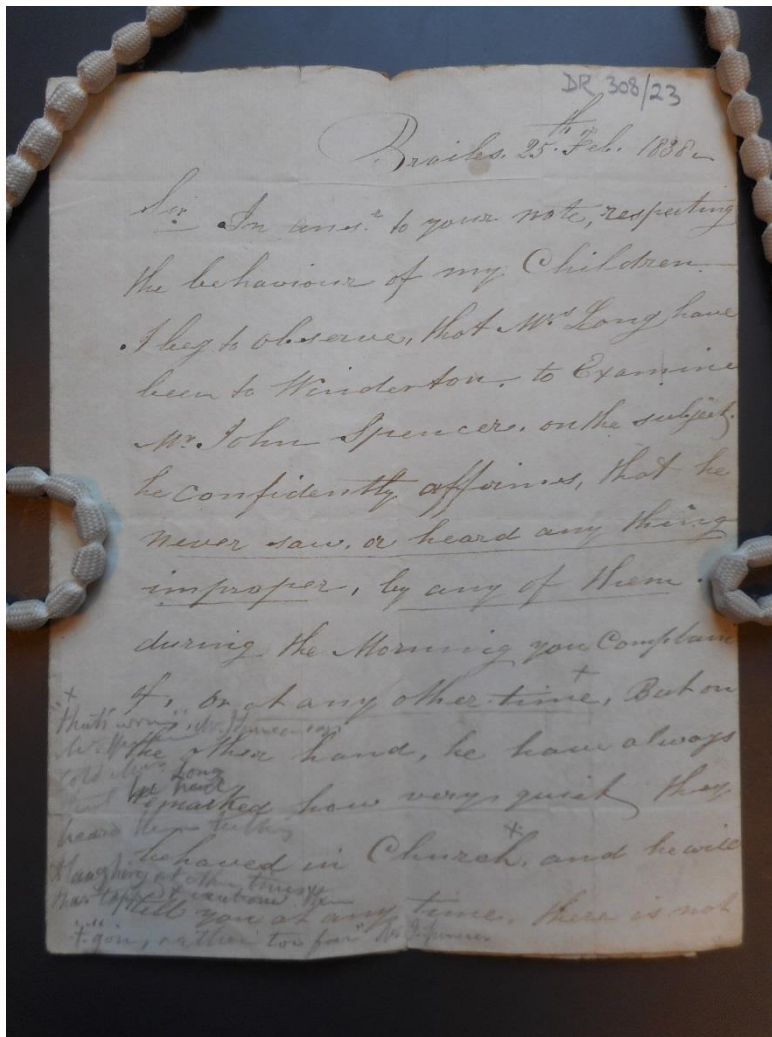 DR 308/23
Brailes. 25th Feb. 1838
Sir In ansr. to your note, respecting
the behaviour of my Children
I beg to observe, that Mrs Long have
been to Winderton. to Examine
Mr. John Spencer. on the subject.
he confidently affirmes, that he
never saw, or heard any thing
improper, by any of them.
during the Morning you Complain
of, or at any other time, But on
the other hand, he have always
remarked how very quiet they
behaved in Church, and he will
tell you at any time. there is not
+
"that's wrong" Mr. Spencer says
told Mrs. Long
that he had
heard them talking
& laughing at other times
has tapped & cautioned them
+ "goin, rather too far" Mr Spencer